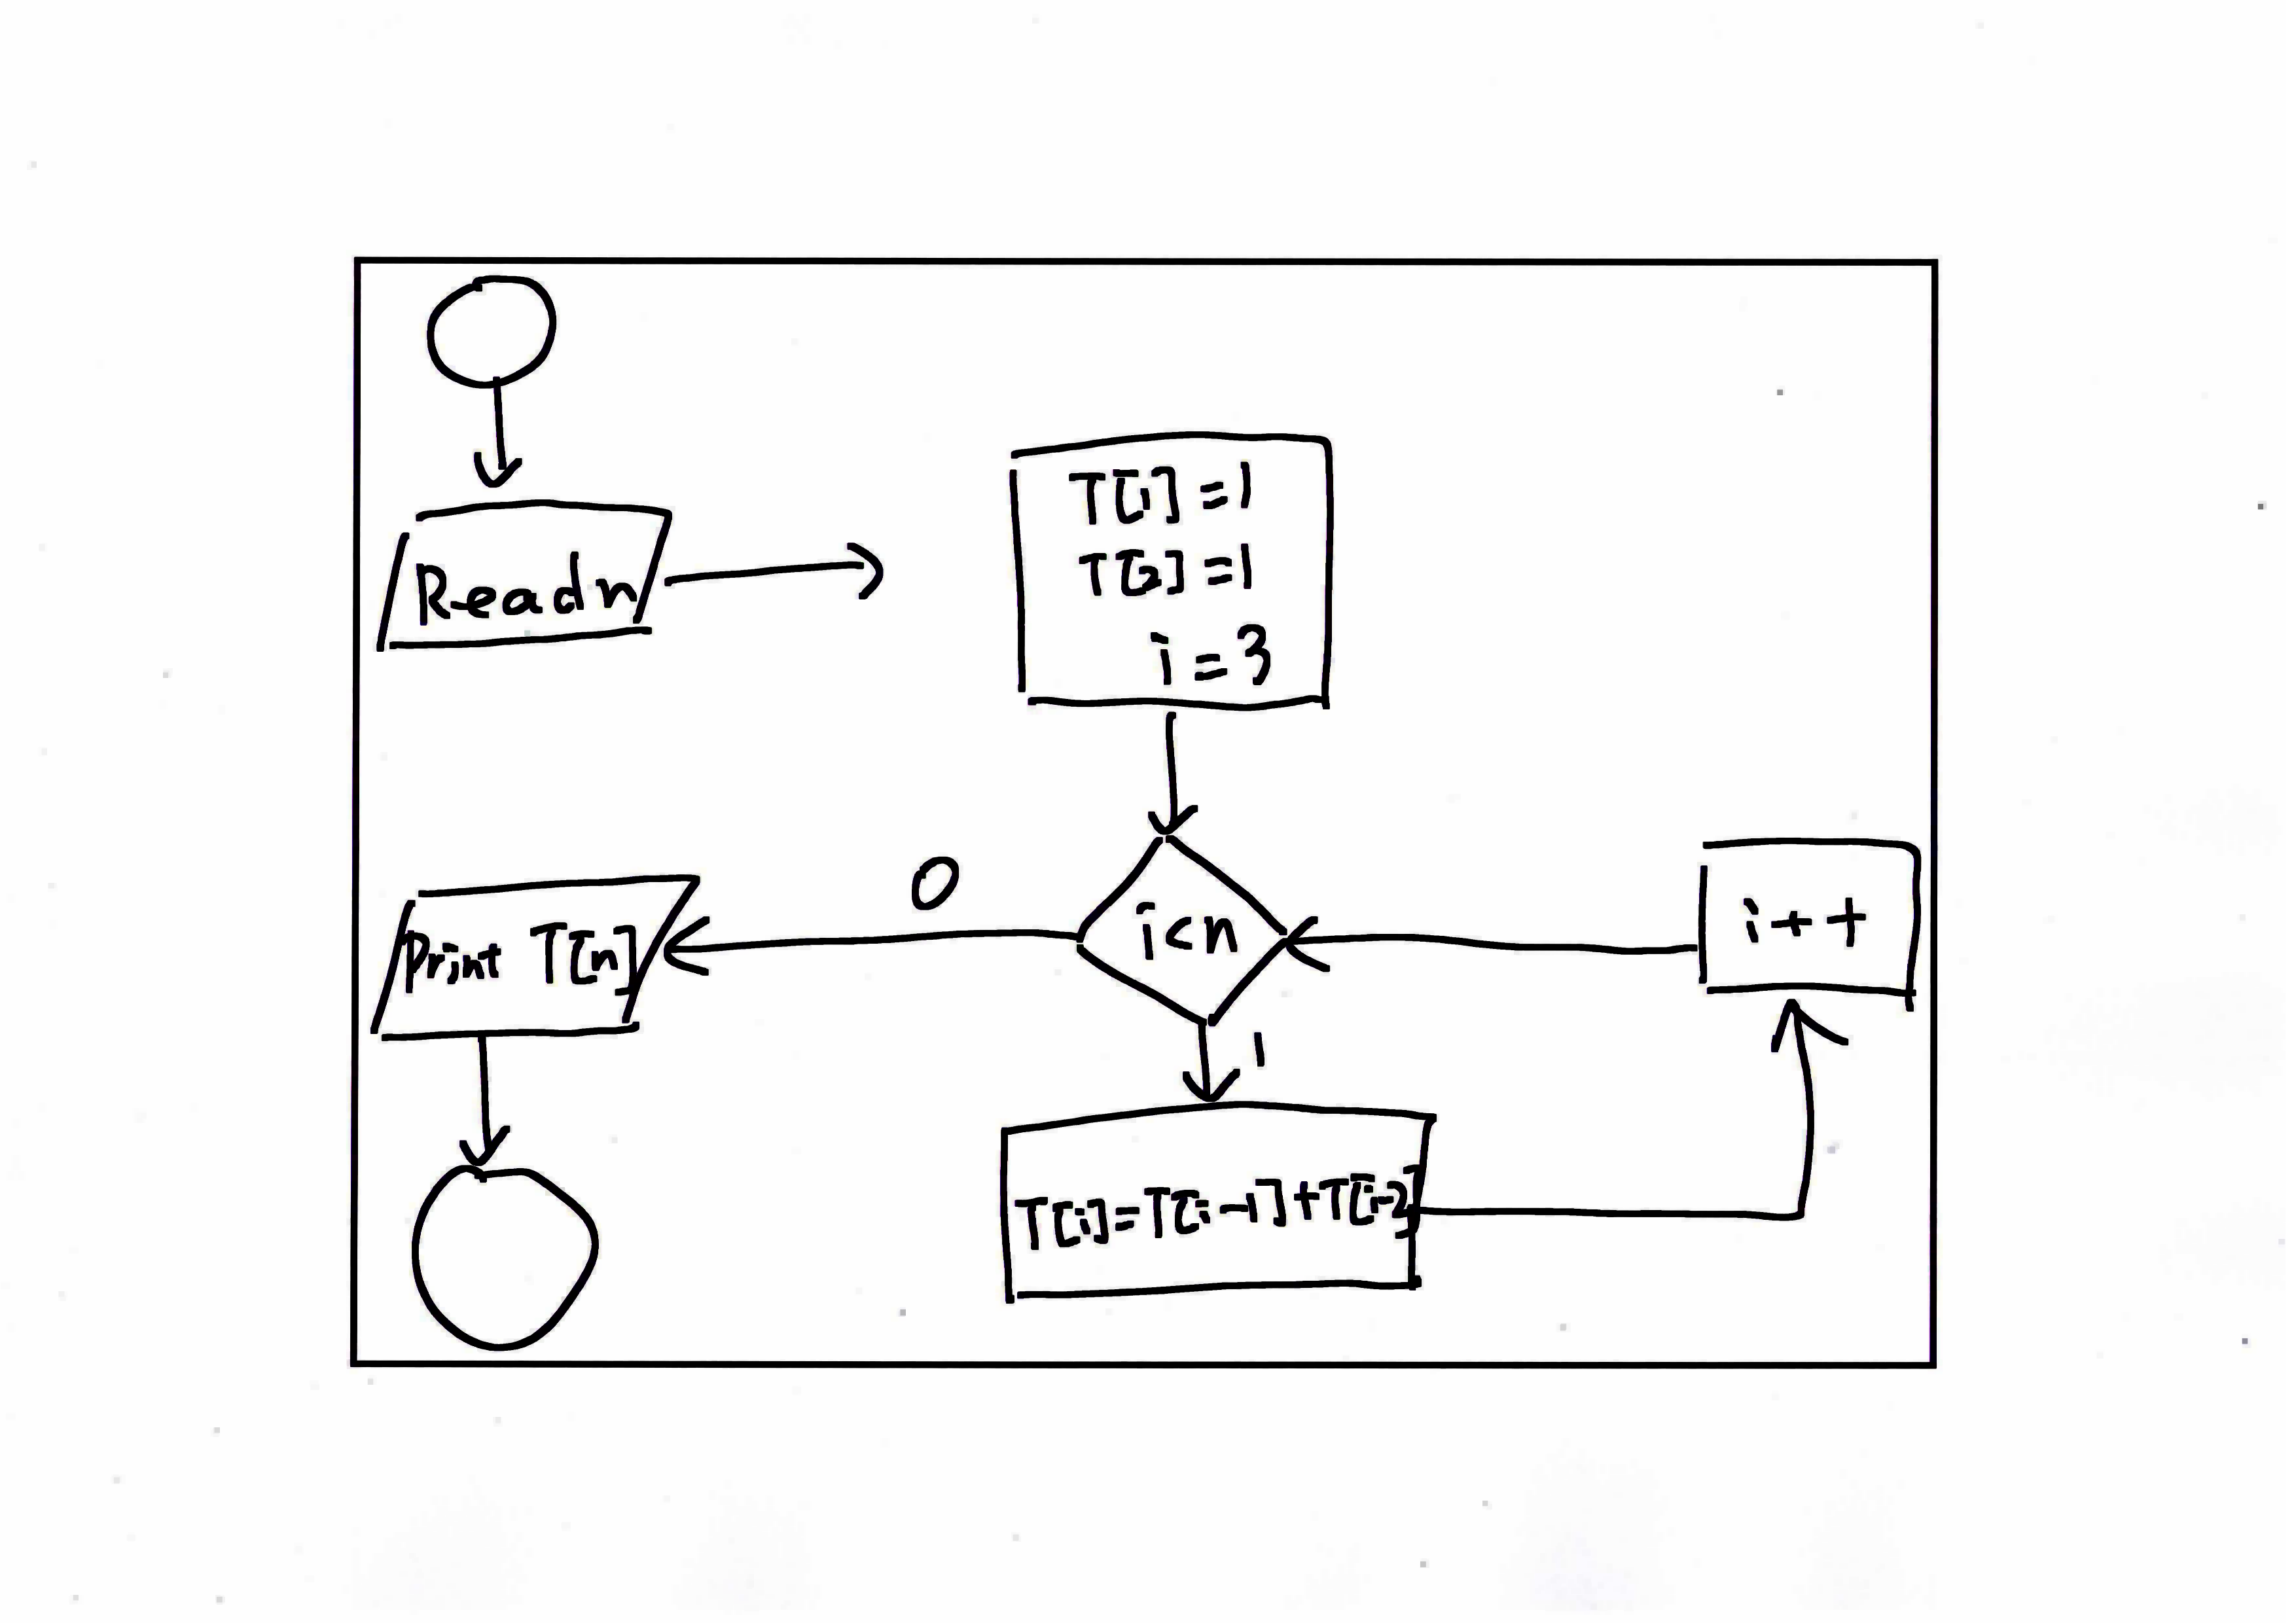 Read n
T[1] =1
T[2] =1
i =3
0
i<n
i++
Print T[n]
1
T[i]=T[i-1]+T[i-2]